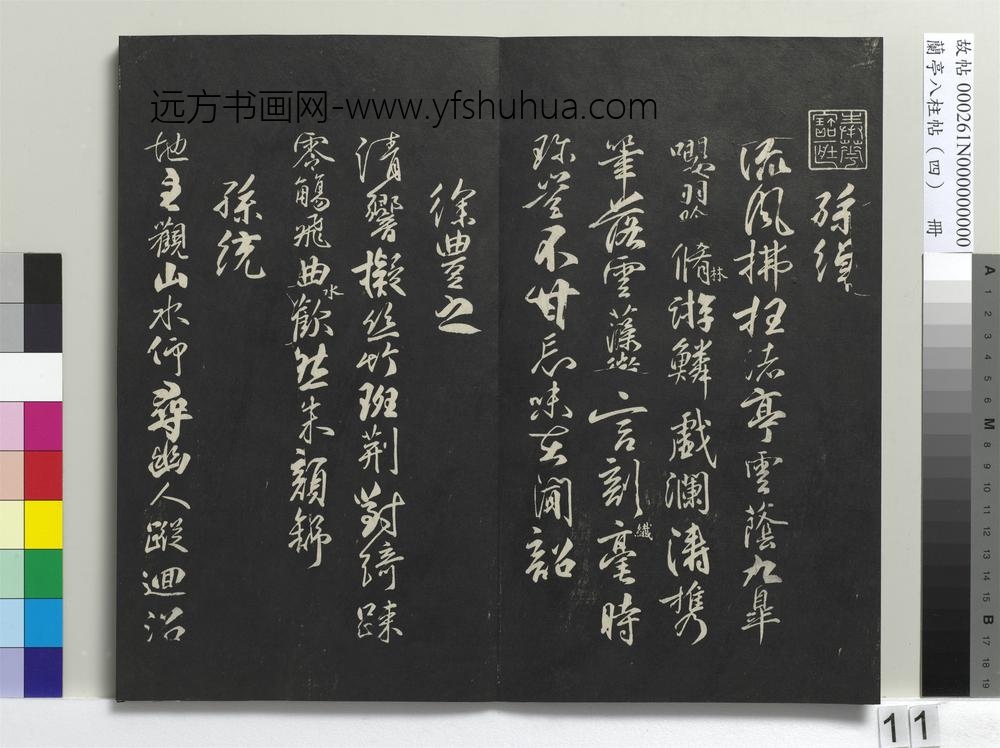 故帖 000261N000000000
蘭亭八柱帖（四） 冊
远方书画网-www.yfshuhua.com
孫綽
流風拂枉渚亭雲蔭九皋
嚶羽吟脩林游鱗戲瀾濤攜
筆落雲藻微言剖纖毫時
珍豈不甘忘味在聞韶
徐豊之
清響擬絲竹班荊對綺踈
零觴飛曲水歡然朱顏舒
孫統
地主觀山水仰尋幽人蹤迴沼
11
A 1 2 3 4 5 6 M 8 9 10 11 12 13 14 15 B 17 18 19